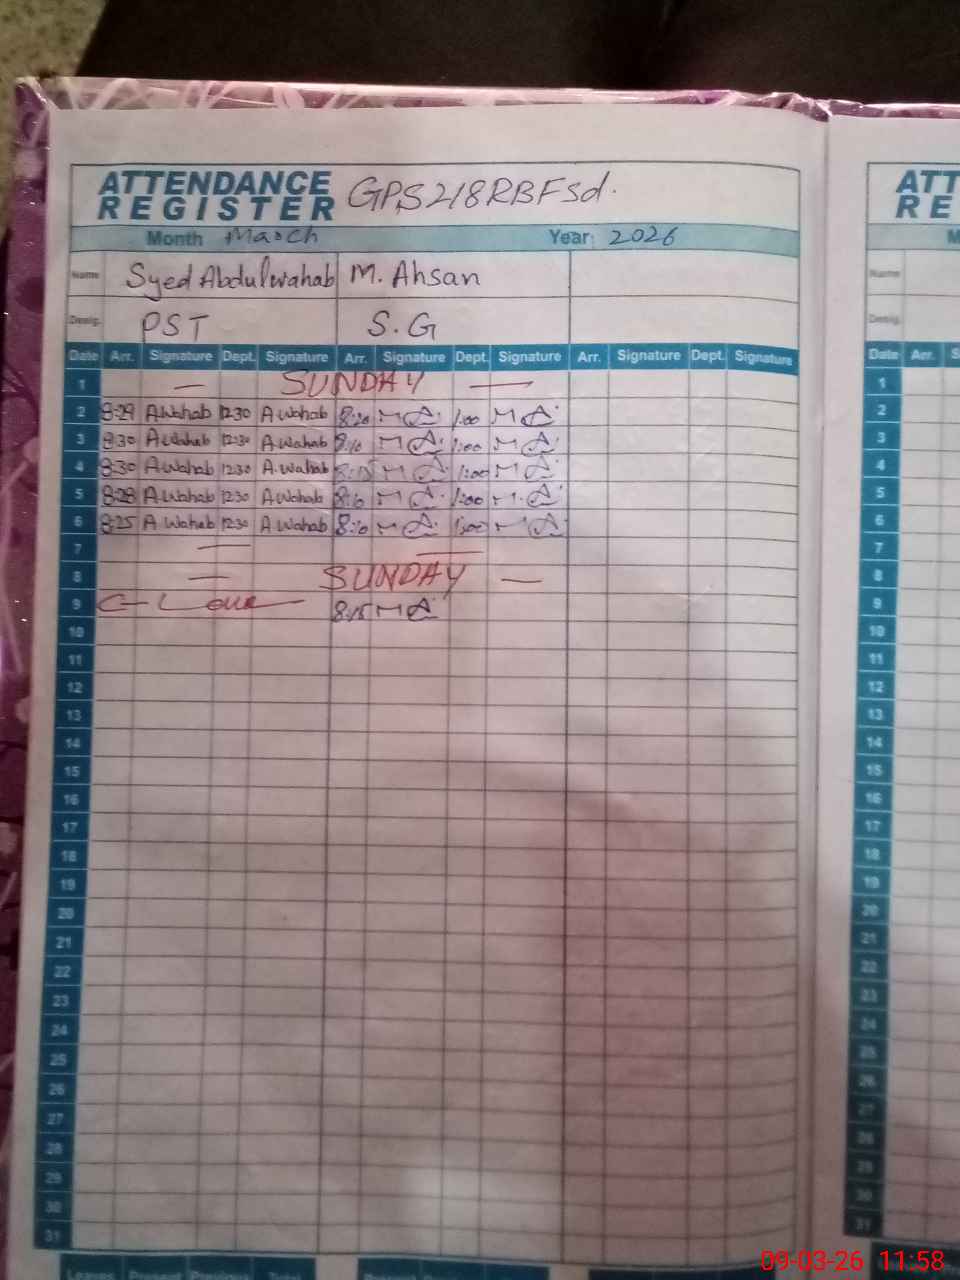 ATTENDANCE REGISTER GPS 218RBFsd.
Month March Year: 2026
Name Syed Abdulwahab M. Ahsan
Desig. PST S.G
Date Arr. Signature Dept. Signature Arr. Signature Dept. Signature Arr. Signature Dept. Signature
1 — SUNDAY —
2 8:29 A.Wahab 12:30 A.Wahab 8:20 M A. 1:00 M A.
3 8:30 A.Wahab 12:30 A.Wahab 8:10 M A. 1:00 M A.
4 8:30 A.Wahab 12:30 A.Wahab 8:15 M A. 1:00 M A.
5 8:28 A.Wahab 12:30 A.Wahab 8:10 M A. 1:00 M. A.
6 8:25 A Wahab 12:30 A Wahab 8:10 M A. 1:00 M A.
7 — —
8 — SUNDAY —
9 C- Leave 8:15 M A
10
11
12
13
14
15
16
17
18
19
20
21
22
23
24
25
26
27
28
29
30
31
ATT
RE
M
Name
Desig.
Date Arr. S
1
2
3
4
5
6
7
8
9
10
11
12
13
14
15
16
17
18
19
20
21
22
23
24
25
26
27
28
29
30
31
09-03-26 11:58